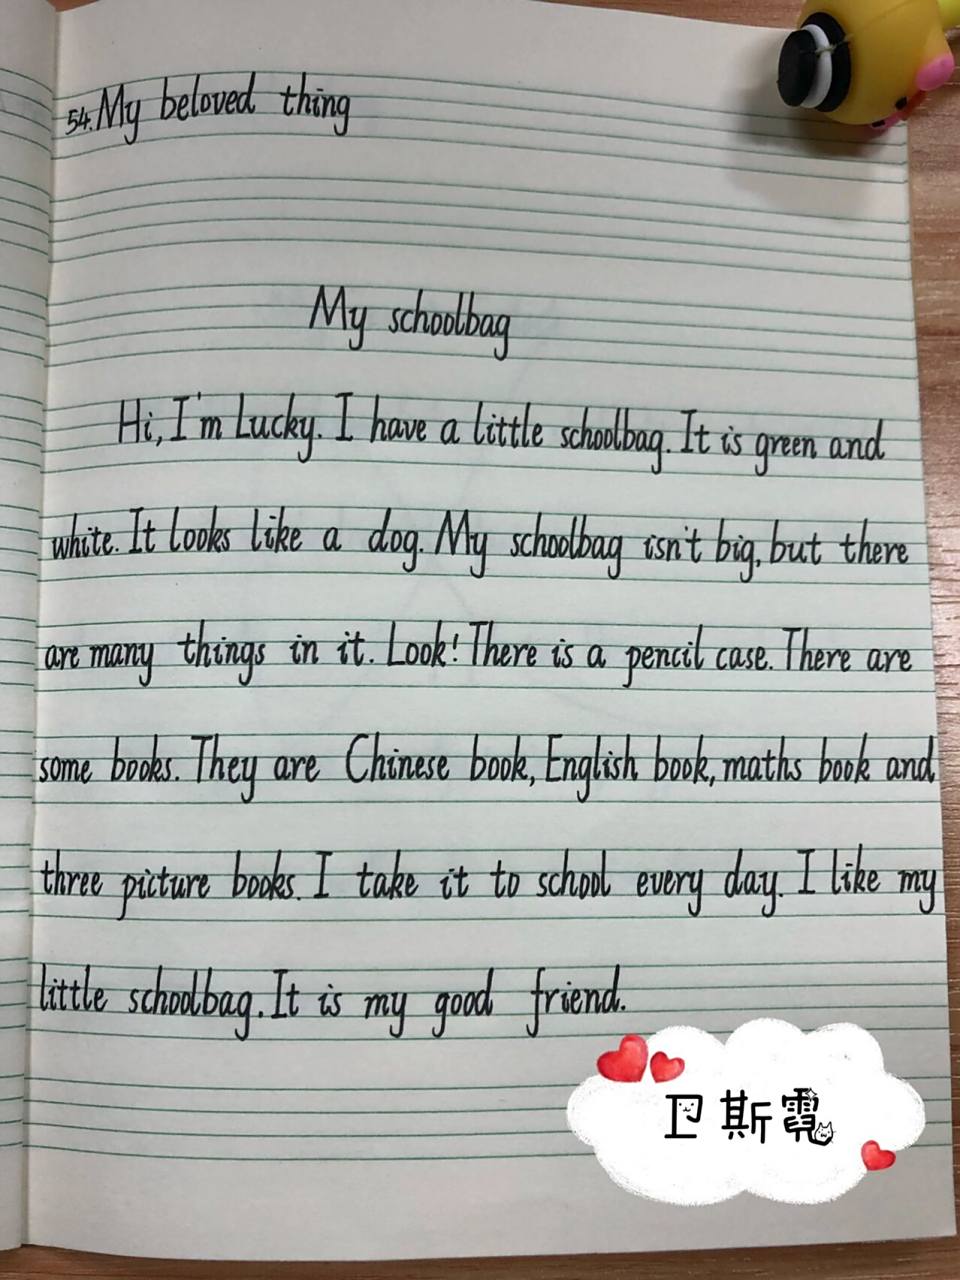 54. My beloved thing
My schoolbag
Hi, I'm Lucky. I have a little schoolbag. It is green and
white. It looks like a dog. My schoolbag isn't big, but there
are many things in it. Look! There is a pencil case. There are
some books. They are Chinese book, English book, maths book and
three picture books. I take it to school every day. I like my
little schoolbag. It is my good friend.
卫斯霓